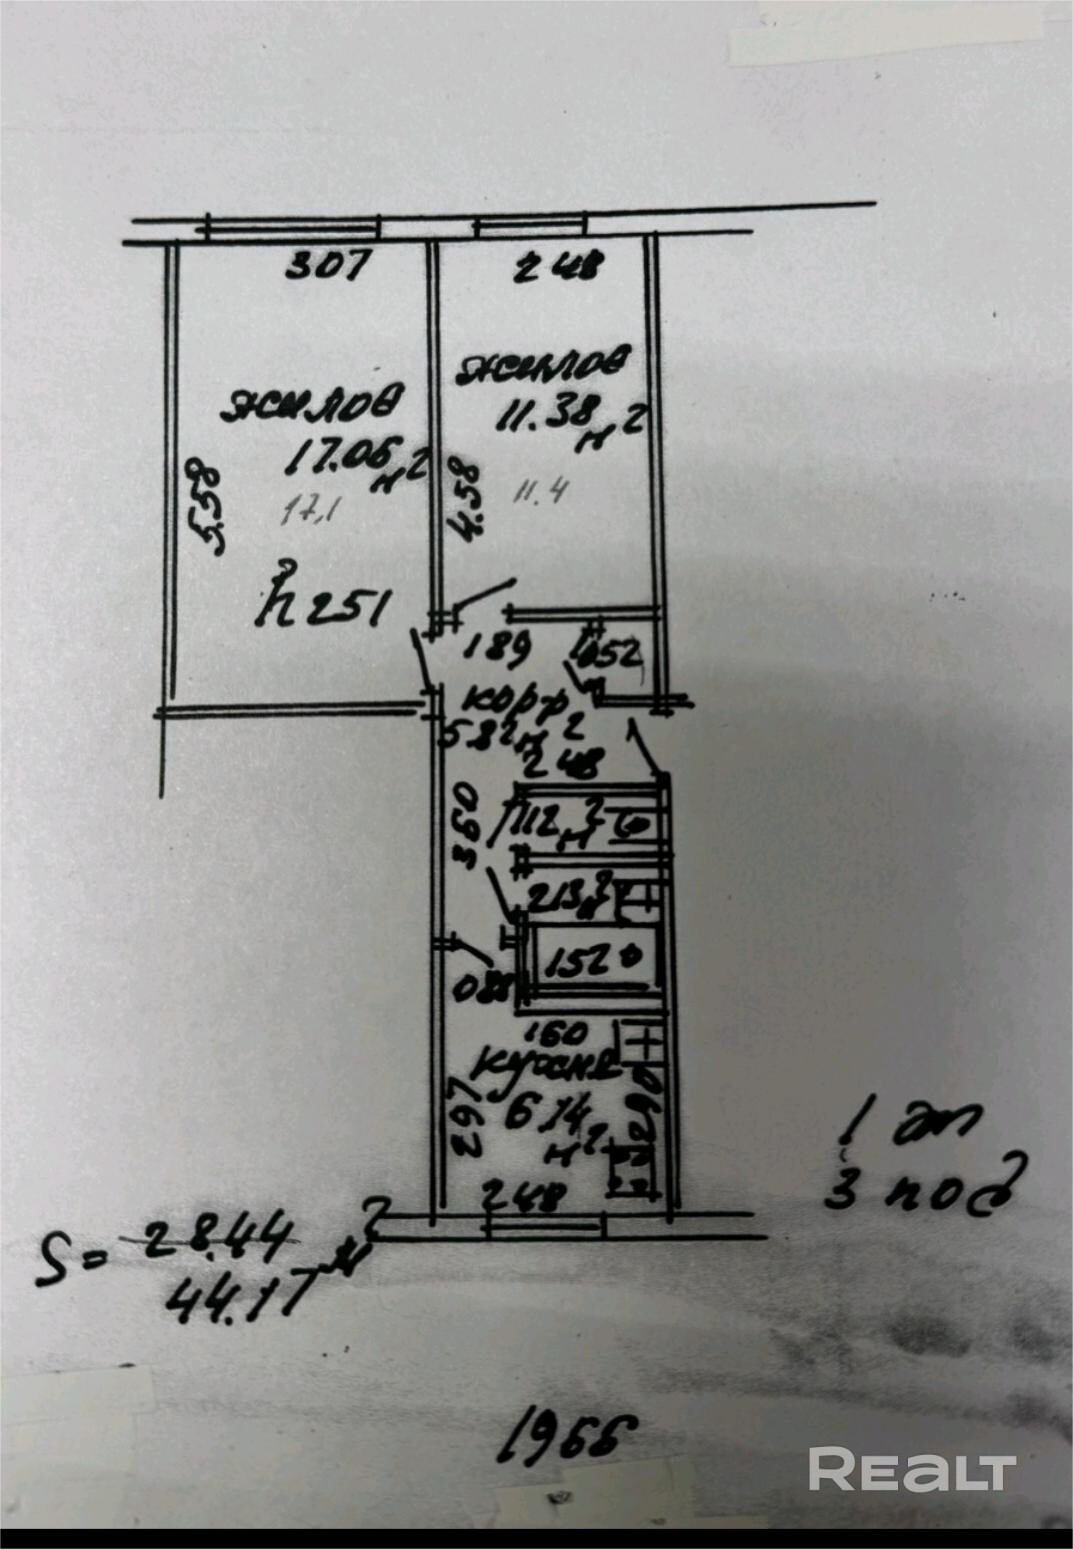 307
248
жилое
17.06 м2
17,1
5.58
h 251
жилое
11.38 м2
11.4
4.58
189
052
корр
5.82 м2
248
350
112 м2
213 м2
152
088
160
кухня
6.14 м2
297
290
248
1 эт
3 под
S = 28.44
44.17 м2
1966
REALT